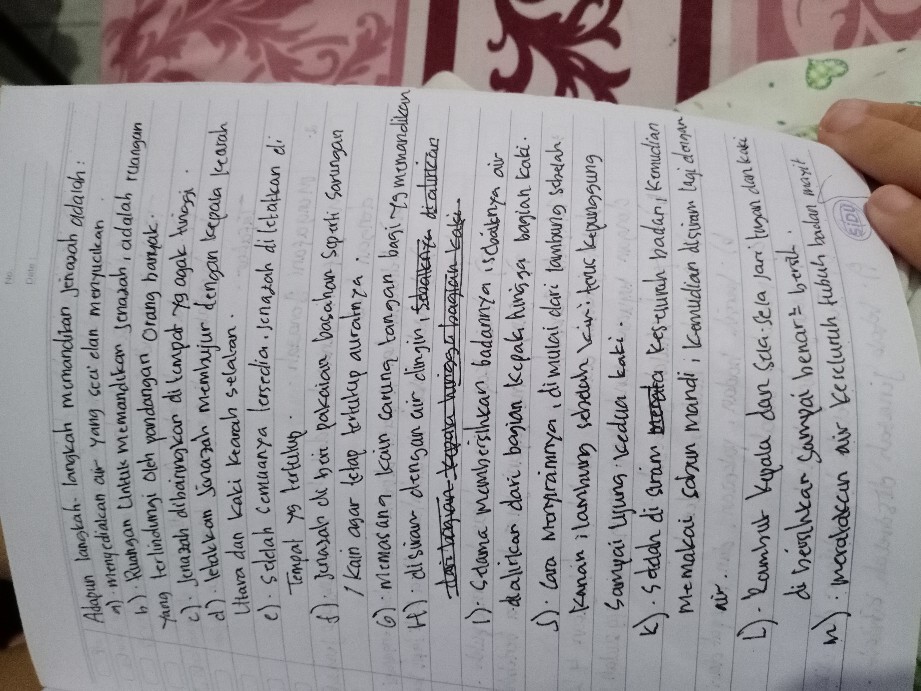 No.
Date:
Adapun langkah-langkah memandikan jenazah adalah:
a) menyediakan air yang suci dan menyucikan.
b). Ruangan Untuk memandikan jenazah, adalah ruangan
yang terlindungi oleh pandangan Orang banyak.
c). Jenazah dibaringkan di tempat yg agak tinggi.
d). letakkan Jenazah membujur dengan kepala kearah
Utara dan kaki kearah selatan.
e). Setelah semuanya tersedia, jenazah diletakkan di
Tempat yg tertutup.
f). Jenazah di beri pakaian basahan seperti sarungan
/ kain agar tetap tertutup auratnya.
G) memasang kain sarung tangan bagi yg memandikan
H). disiram dengan air dingin, sebaiknya dialirkan
dari bagian kepala hingga bagian kaki.
I). Selama membersihkan badannya, sebaiknya air
dialirkan dari bagian kepala hingga bagian kaki.
J). Cara menyiramnya, dimulai dari lambung sebelah
kanan, lambung sebelah kiri terus kepunggung
Sampai ujung kedua kaki.
K). Setelah di siram keseluruh badan, kemudian
memakai sabun mandi, kemudian disiram lagi dengan
air.
L). Rambut kepala dan sela-sela jari tangan dan kaki
di bersihkan sampai benar² bersih.
M). meratakan air keseluruh tubuh badan mayit